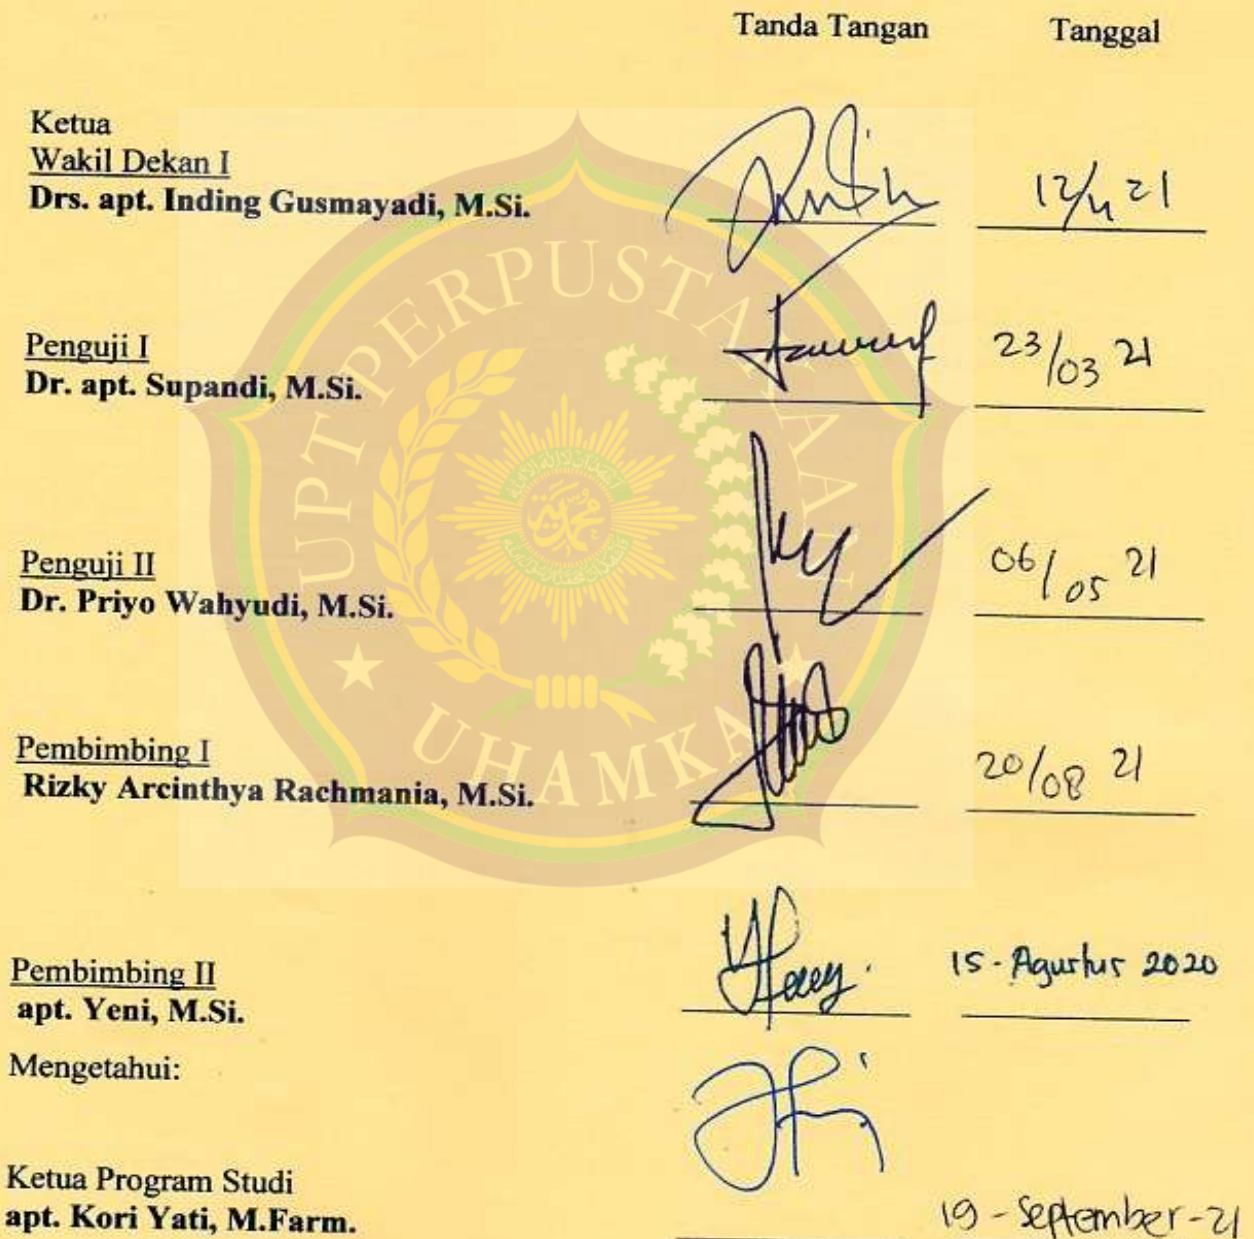 Tanda Tangan Tanggal
Ketua
Wakil Dekan I
Drs. apt. Inding Gusmayadi, M.Si.
12/4 21
Penguji I
Dr. apt. Supandi, M.Si.
23/03 21
Penguji II
Dr. Priyo Wahyudi, M.Si.
06/05 21
Pembimbing I
Rizky Arcinthya Rachmania, M.Si.
20/08 21
Pembimbing II
apt. Yeni, M.Si.
15 - Agustus 2020
Mengetahui:
Ketua Program Studi
apt. Kori Yati, M.Farm.
19 - September - 21
UPT PERPUSTAKAAN
UHAMKA